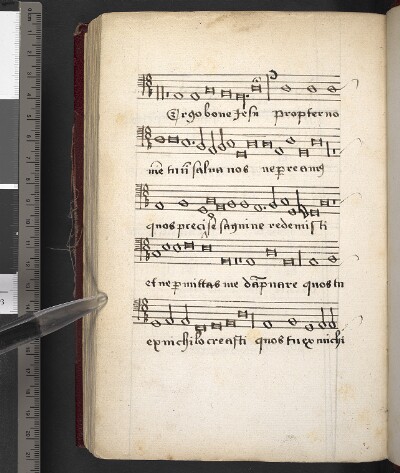 Ergo bone Jesu propter no
mē tuū salva nos ne pereamꝰ
quos precioso sāguine redemisti
et ne pmittas me dāpnare quos tu
ex nichilo creasti quos tu ex nichi